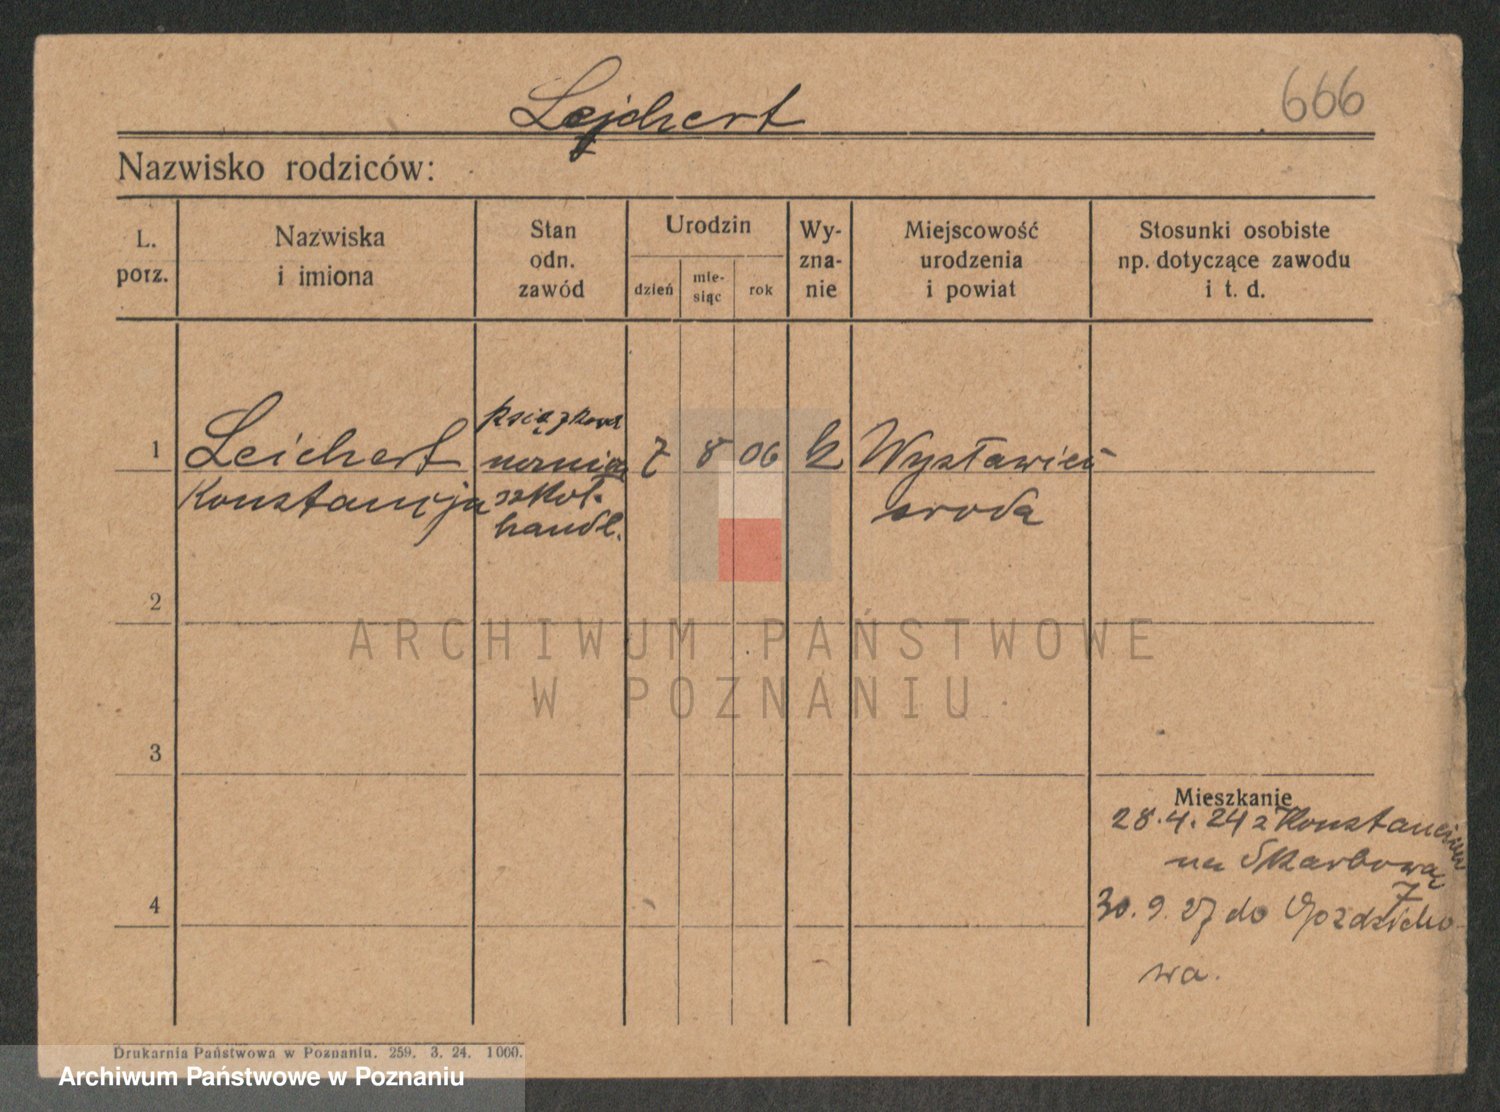 Lejchert
666
Nazwisko rodziców:
L. porz.
Nazwiska i imiona
Stan odn. zawód
Urodzin
dzień
mie-siąc
rok
Wy-zna-nie
Miejscowość urodzenia i powiat
Stosunki osobiste np. dotyczące zawodu i t. d.
1 Leichert 7 8 06 k
Konstancja szkol.
handl.
środa
2
ARCHIWUM PAŃSTWOWE
W POZNANIU
3
Mieszkanie
28.4.24 z
na Skarbową
7
4
30.9.27 do Gozdzicho
wa.
Drukarnia Państwowa w Poznaniu. 259. 3. 24. 1000.
Archiwum Państwowe w Poznaniu